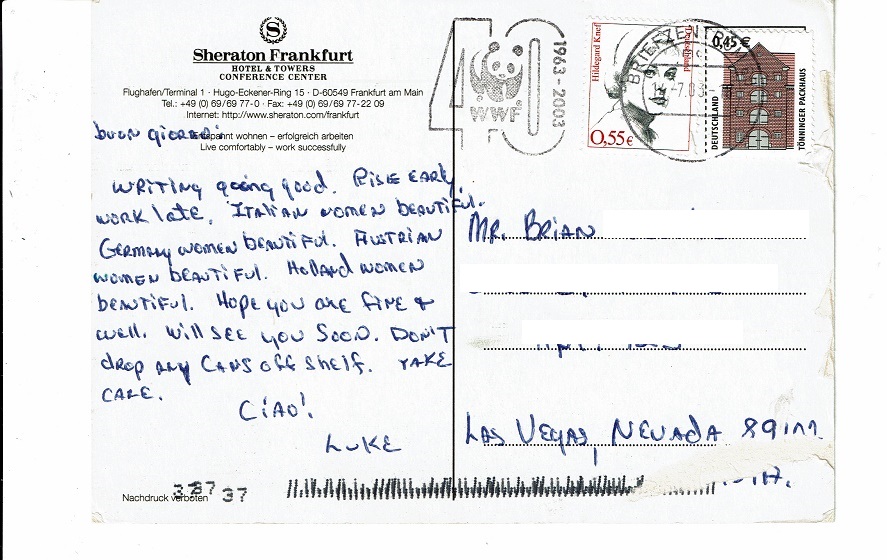 Sheraton Frankfurt
HOTEL & TOWERS
CONFERENCE CENTER
Flughafen/Terminal 1 · Hugo-Eckener-Ring 15 · D-60549 Frankfurt am Main
Tel.: +49 (0) 69/69 77-0 · Fax: +49 (0) 69/69 77-22 09
Internet: http://www.sheraton.com/frankfurt
Entspannt wohnen – erfolgreich arbeiten
Live comfortably – work successfully
40
WWF
1963-2003
BRIEFZENTRUM
Hildegard Knef
0,55€
0,45€
DEUTSCHLAND
TÖNNINGER PACKHAUS
buon giorno!
WRITING going good. RISE EARLY
WORK late. ITALIAN WOMEN BEAUTIFUL.
GERMANY WOMEN BEAUTIFUL. AUSTRIAN
WOMEN BEAUTIFUL. HOLLAND WOMEN
BEAUTIFUL. HOPE YOU ARE FINE &
well. Will SEE YOU SOON. DON'T
drop any CANS off SHELF. TAKE
CARE.
CIAO!
LUKE
MR. BRIAN
LAS VEGAS, NEVADA
Nachdruck verboten
37